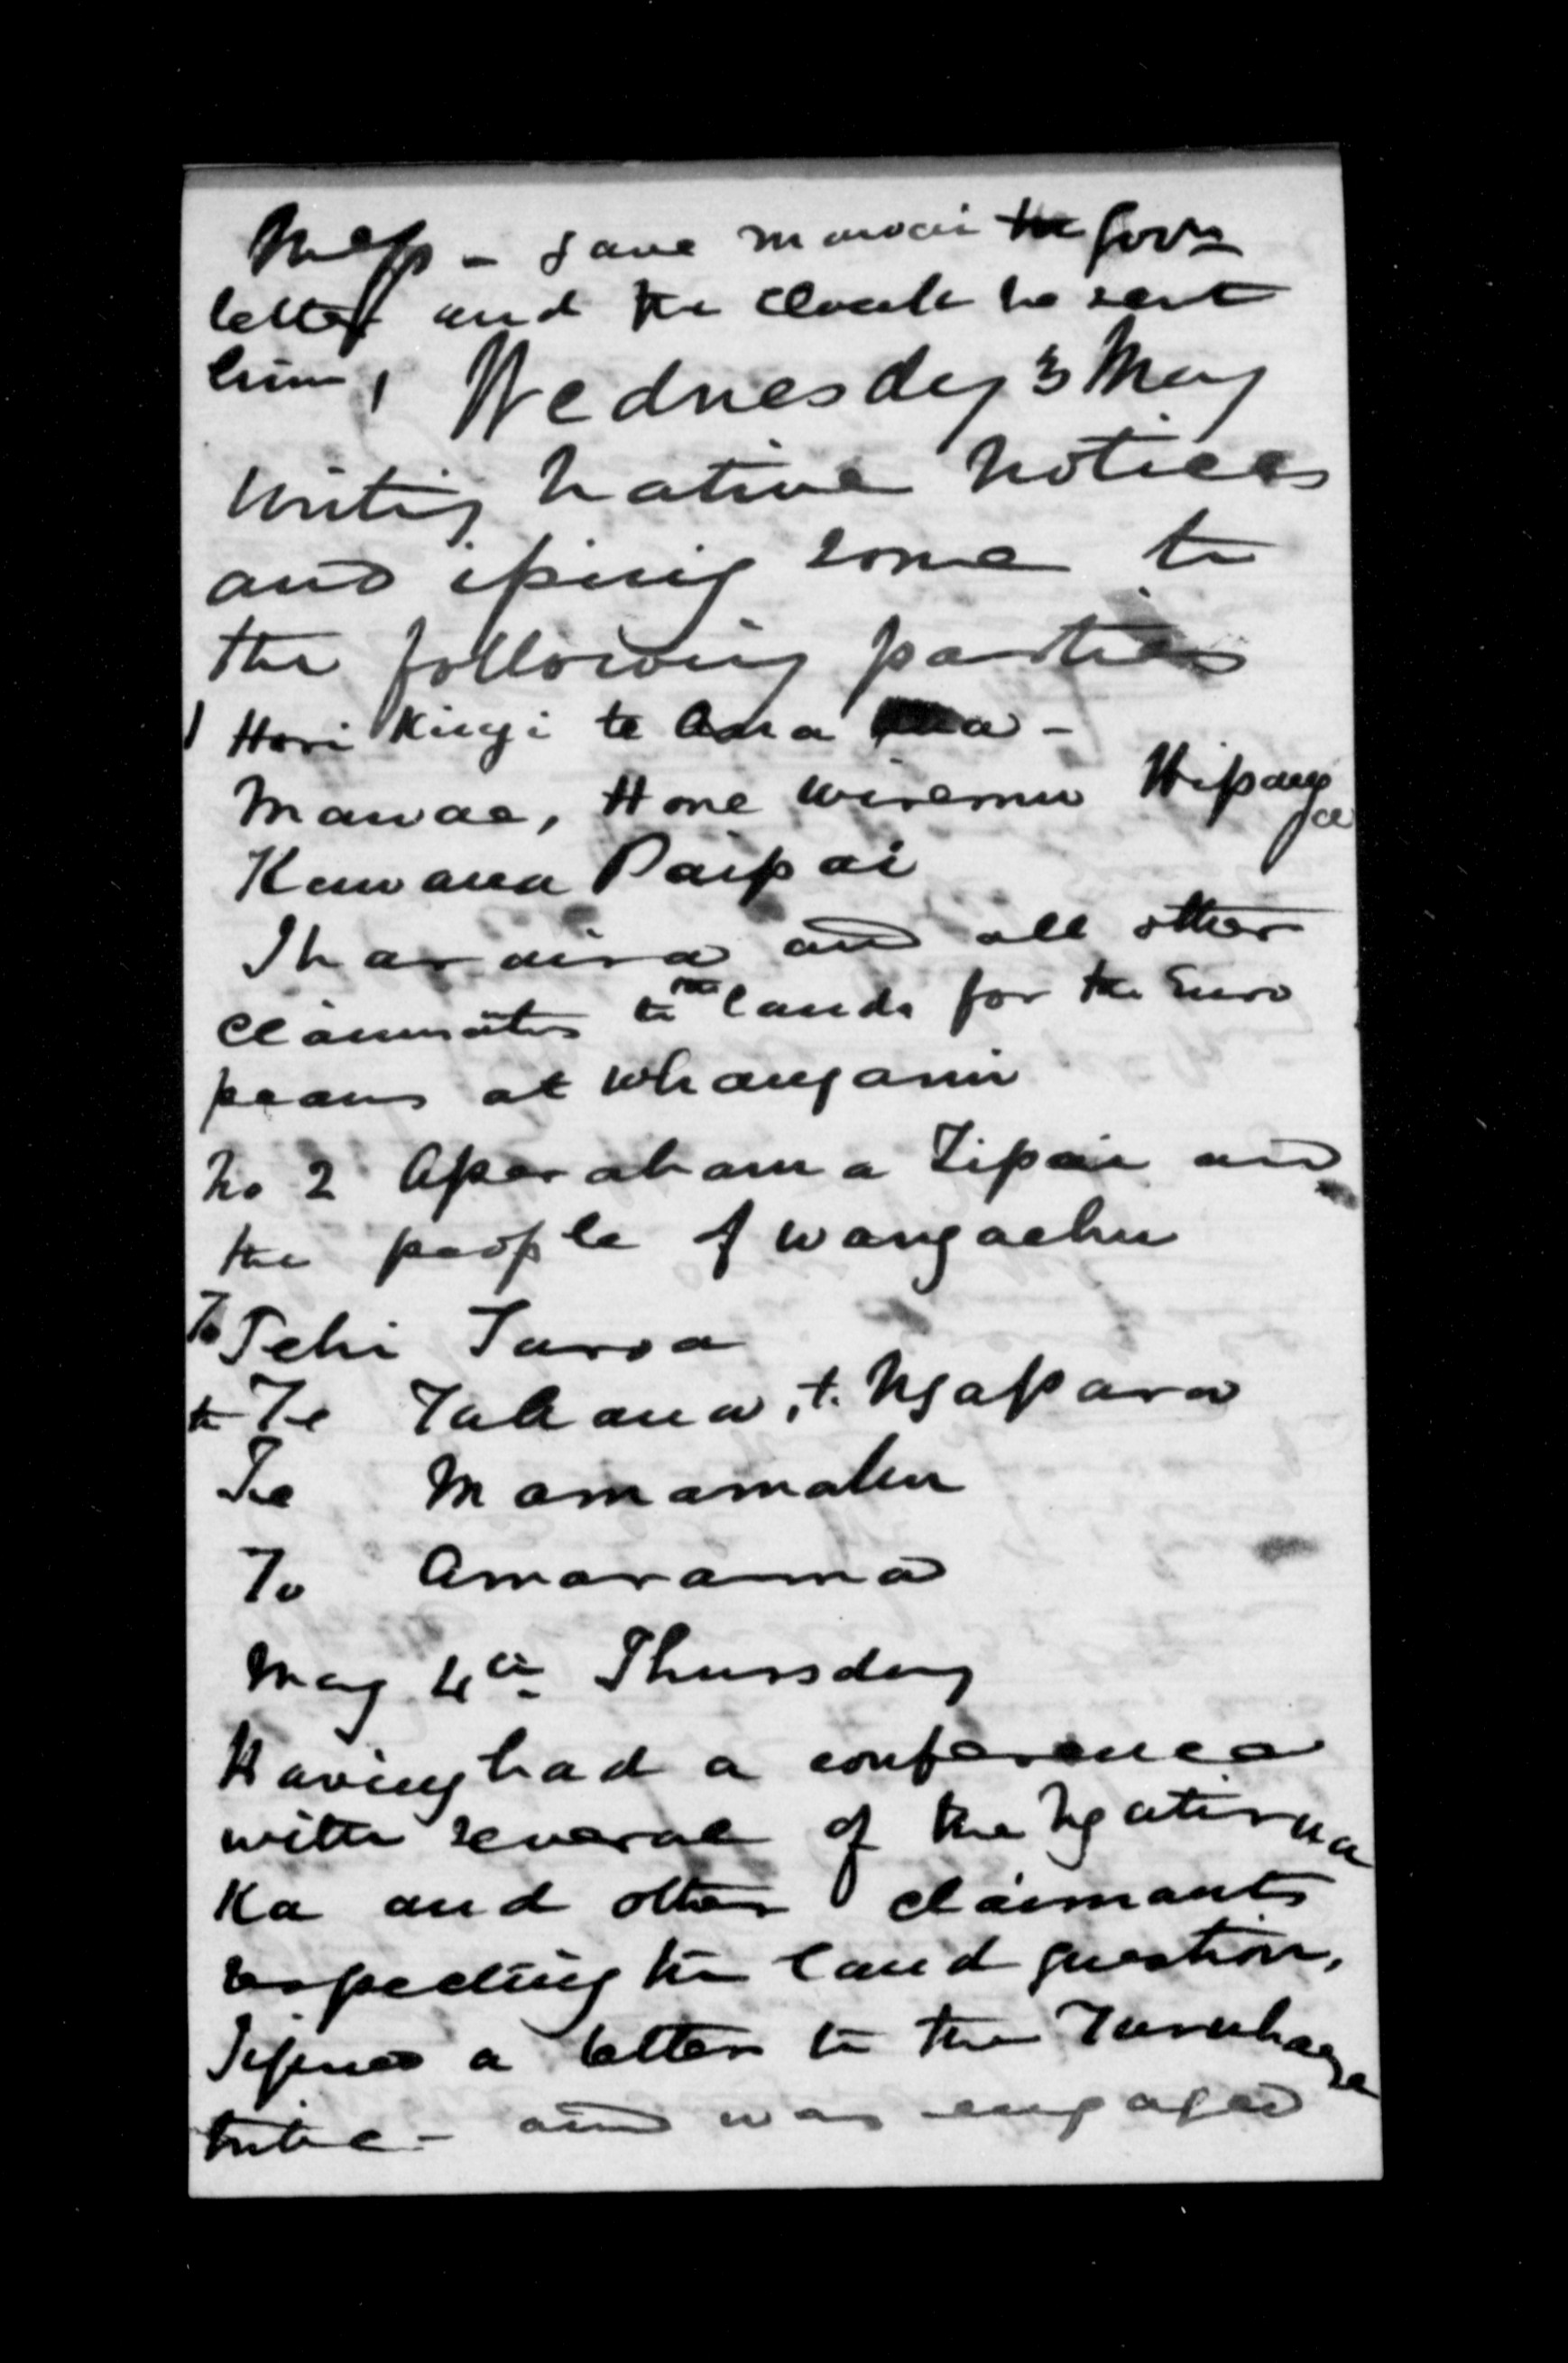 Mess - gave Mawae the Govrs
letter and the cloak he sent
him, Wednesday 3 May
Writing native notices
and issuing some to
the following parties
1 Hori Kingi te Ana ua -
Mawae, Hone Wiremu Hipango
Kawana Paipai
and all other
claimants to the lands for the Euro
peans at Whanganui
No 2 Aperahama Tipai and
the people of Wangaehu
To Pehi Turoa
to Te Tahana, t. Ngapara
Te Mamamaku
To Amarama
May 4th Thursday
Having had a conference
with several of the Ngatirua
Ka and other claimants
respecting the land question,
Issued a letter to the Turuhaere
tribe - and was engaged